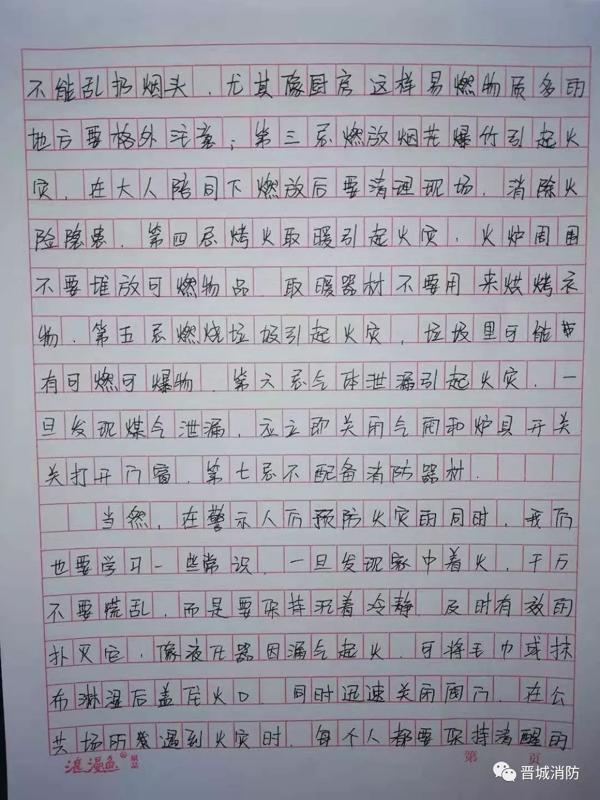 不能乱扔烟头，尤其像厨房这样易燃物质多的
地方要格外注意；第三忌燃放烟花爆竹引起火
灾，在大人陪同下燃放后要清理现场，消除火
险隐患，第四忌烤火取暖引起火灾，火炉周围
不要堆放可燃物品，取暖器材不要用来烘烤衣
物，第五忌燃烧垃圾引起火灾，垃圾里可能带
有可燃可爆物，第六忌气体泄漏引起火灾，一
旦发现煤气泄漏，应立即关闭气阀和炉具开关
关打开门窗，第七忌不配备消防器材．
当然，在警示人们预防火灾的同时，我们
也要学习一些常识，一旦发现家中着火，千万
不要慌乱，而是要保持沉着冷静，及时有效的
扑灭它，像液化器因漏气起火，可将毛巾或抹
布淋湿后盖住火口，同时迅速关闭阀门，在公
共场所发遇到火灾时，每个人都要保持清醒的
浪漫鱼
第 页
晋城消防